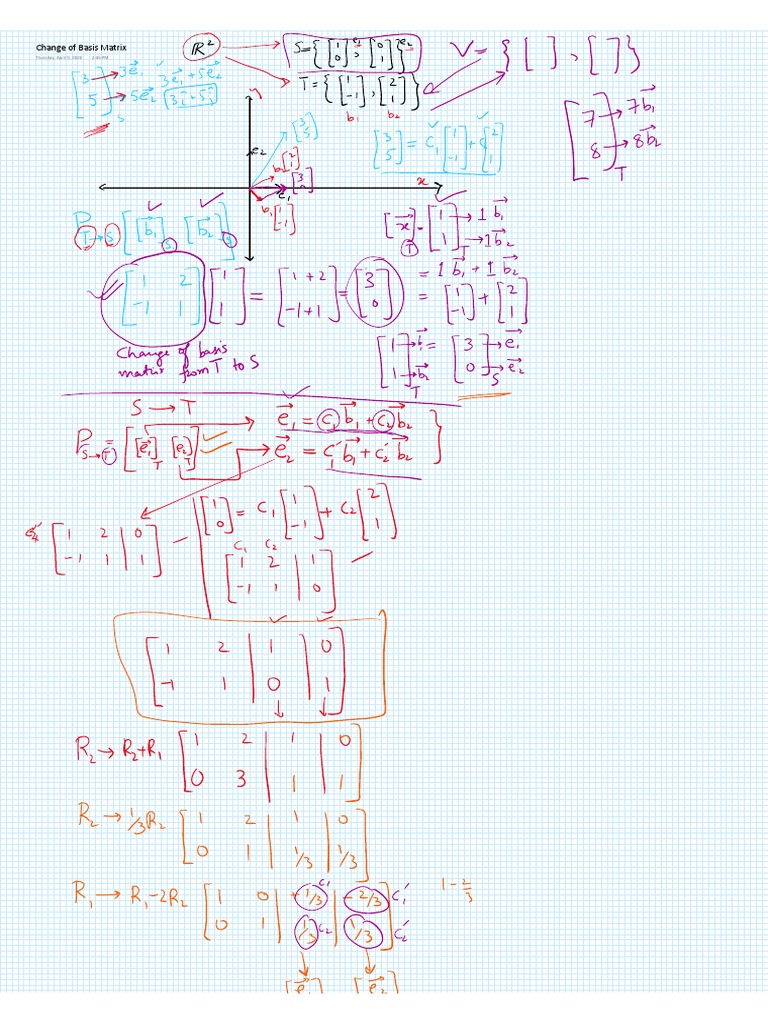 Change of Basis Matrix
Thursday, April 9, 2020 2:46 PM
ℝ²
S = { [1 0], [0 1] } e₁ e₂
T = { [1 -1], [2 1] }
b₁ b₂
V = { [ ], [ ] }
[3 5]_S → 3e⃗₁ → 5e⃗₂
3e⃗₁ + 5e⃗₂
3î + 5ĵ
[3 5] = c₁ [1 -1] + c₂ [2 1]
[7 8]_T → 7b⃗₁ → 8b⃗₂
y
[3 5]
e₂
b₂ [2 1]
[3 0]
e₁
x
b₁ [1 -1]
P_{T→S} [ [b⃗₁]_S [b⃗₂]_S ]
[x⃗]_T = [1 1]_T → 1b⃗₁ → 1b⃗₂
= 1b⃗₁ + 1b⃗₂
= [1 -1] + [2 1]
[1 2; -1 1] [1 1] = [1+2 -1+1] = [3 0]
Change of basis
matrix from T to S
[1 1]_T → b⃗₁ → b⃗₂ = [3 0]_S → e⃗₁ → e⃗₂
S → T
P_{S→T} = [ [e⃗₁]_T [e₂]_T ]
e⃗₁ = c₁b⃗₁ + c₂b⃗₂
e⃗₂ = c₁′b⃗₁ + c₂′b⃗₂
[1 0] = c₁ [1 -1] + c₂ [2 1]
[1 2 | 0; -1 1 | 1]
c₁ c₂
[1 2 | 1; -1 1 | 0]
[1 2 | 1 | 0; -1 1 | 0 | 1]
R₂ → R₂+R₁ [1 2 | 1 | 0; 0 3 | 1 | 1]
R₂ → 1/3R₂ [1 2 | 1 | 0; 0 1 | 1/3 | 1/3]
R₁ → R₁-2R₂ [1 0 | +1/3 | -2/3; 0 1 | 1/3 | 1/3]
c₁ c₂ c₁′ c₂′
1 - 2/3
[e⃗₁] [e⃗₂]